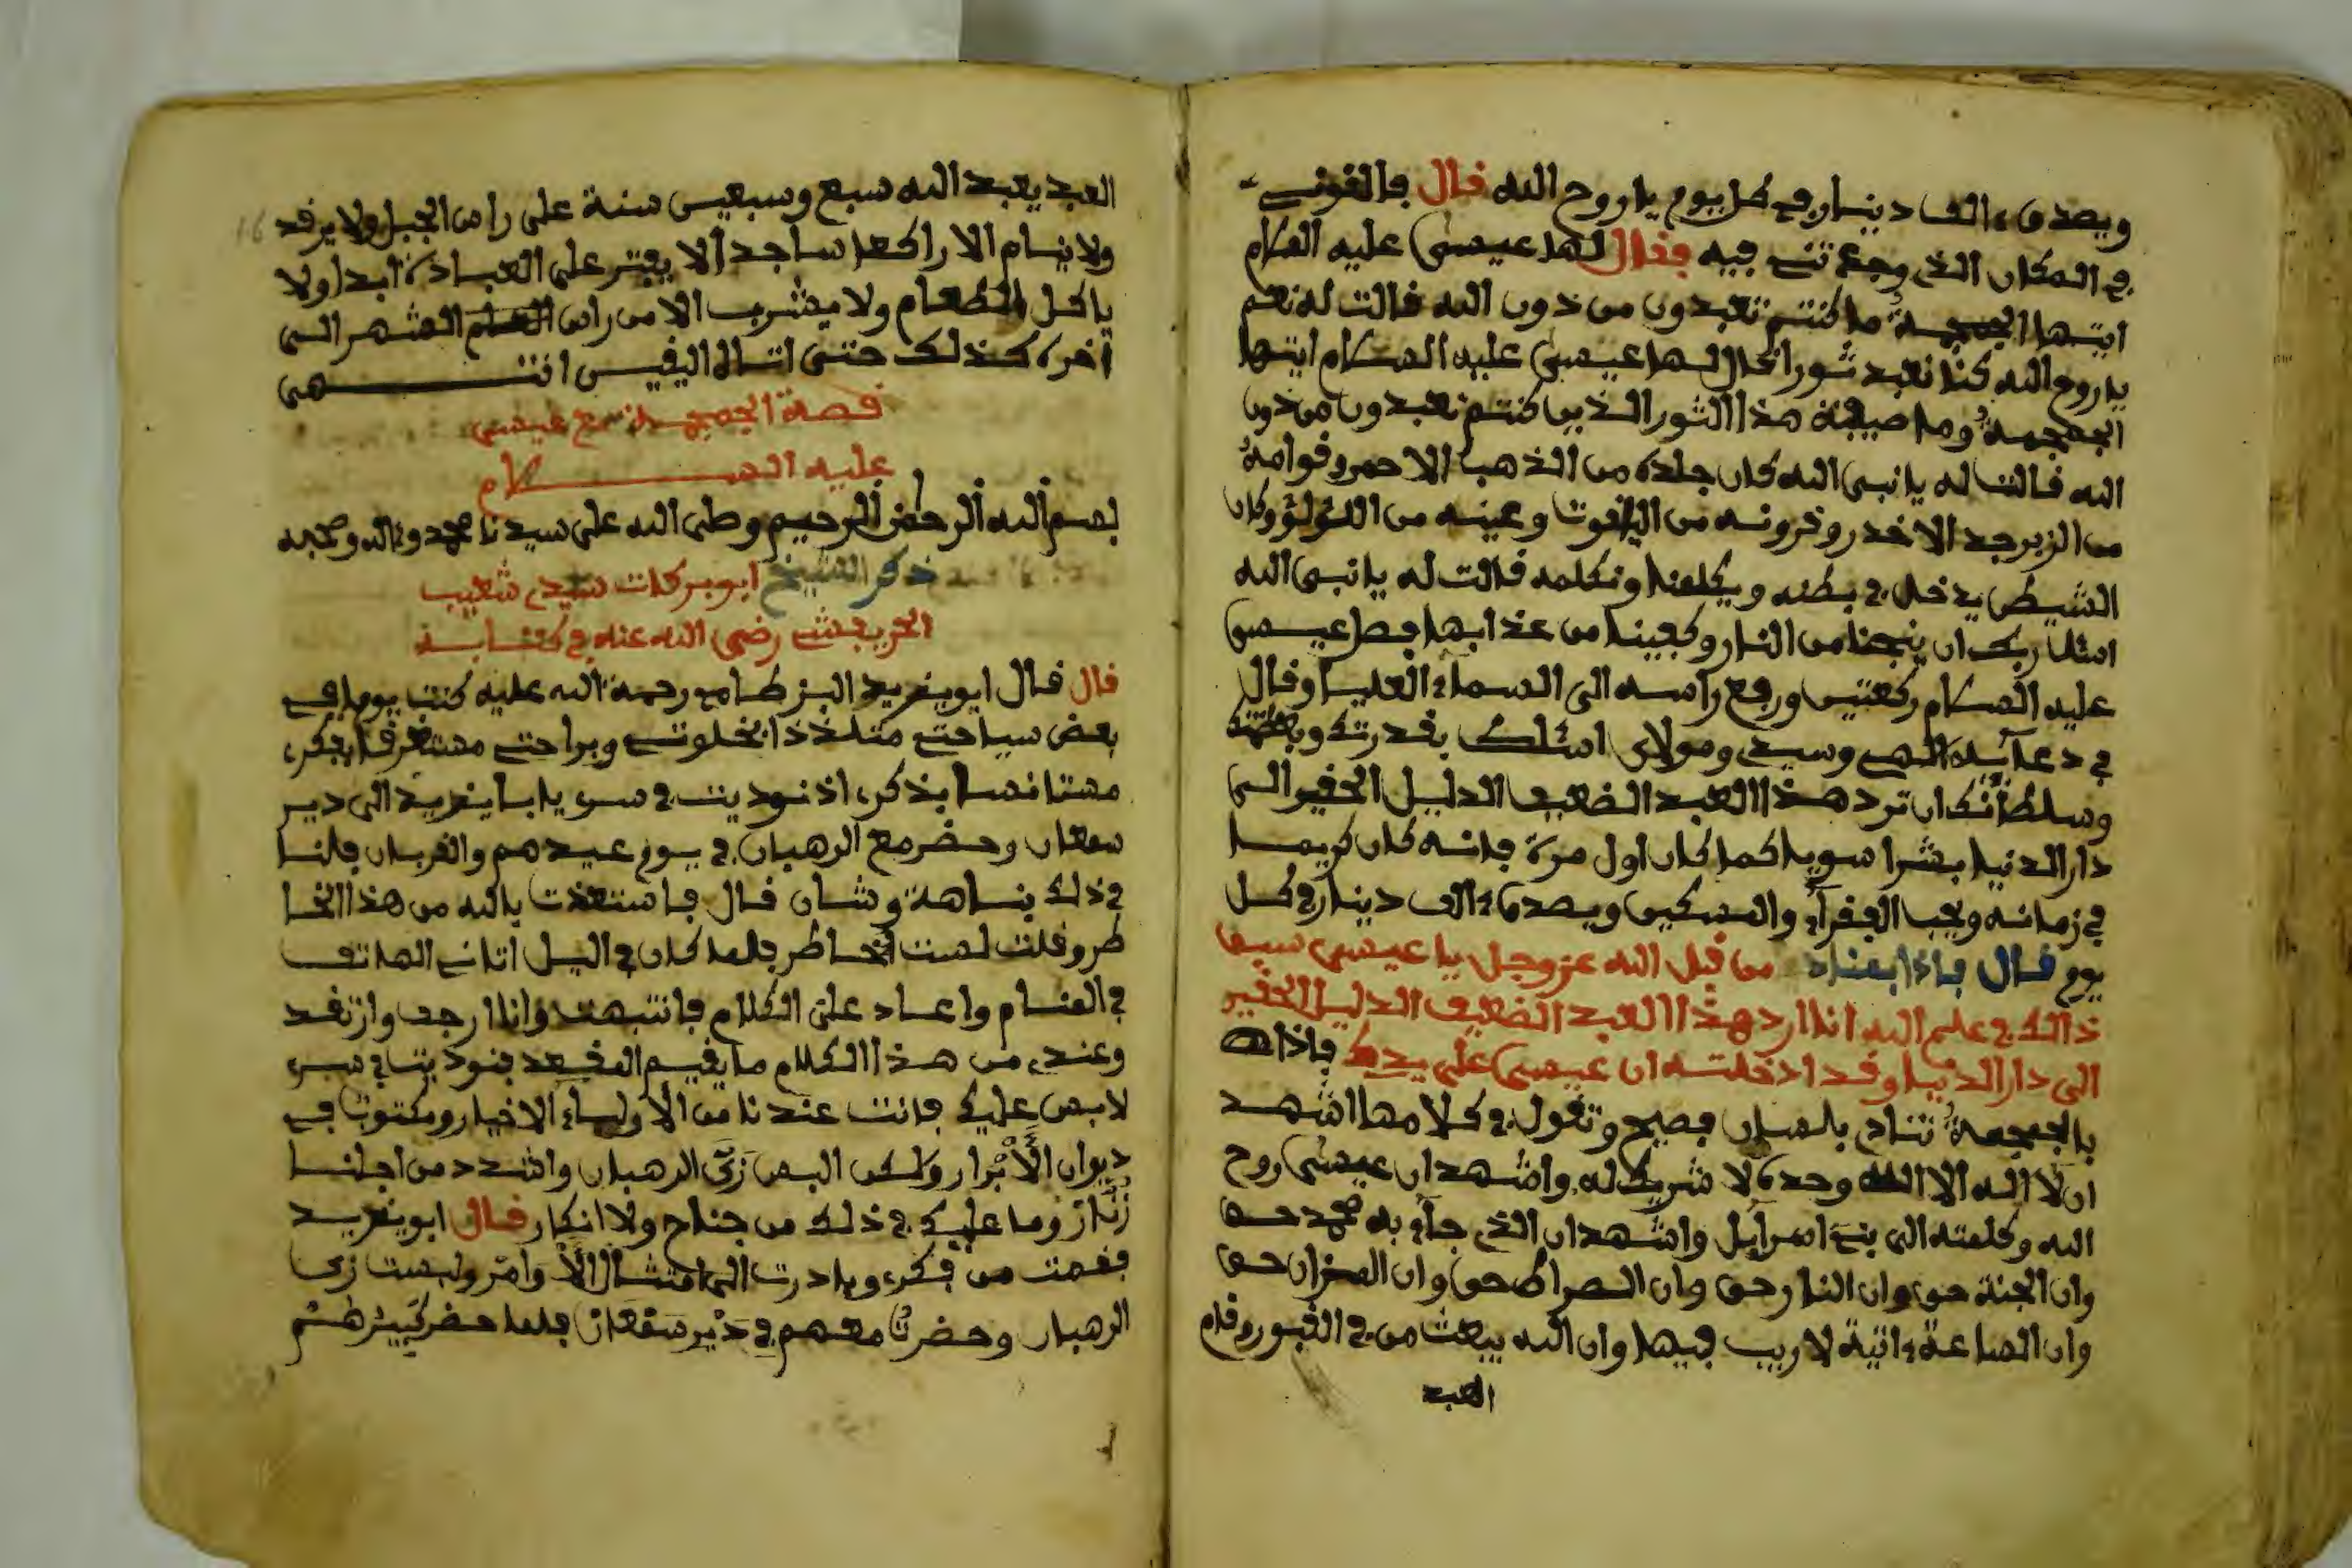 ويصدق ءالف دينار في كل يوم يا روح الله قال فالقوني
في المكان الذي وجدتني فيه فقال لها عيسى عليه السلام
ايتها الجمجمة ما كنتم تعبدون من دون الله قالت له نعم
يا روح الله كنا نعبد ثورا فقال لها عيسى عليه السلام ايتها
الجمجمة وما صيفة هذا الثور الذين كنتم تعبدون من دون
الله قالت له يا نبي الله كان جلده من الذهب الاحمر وقوامه
من الزبرجد الاخدر وقرونه من الياقوت وعينه من اللؤلؤ وكان
الشيطن يدخل في بطنه ويكلمنا ونكلمه قالت له يا نبي الله
اسئل ربك ان ينجنا من النار وكبينا من عذابها فصل عيسى
عليه السلام ركعتين ورفع رأسه الى السماء العليا وقال
في دعآئه الهي وسيدي ومولاي اسئلك بقدرتك وبعظمتك
وسلطانك ان ترد هذا العبد الضعيف الدليل الحقير الى
دار الدنيا بشرا سويا كما كان اول مرة فانه كان كريما
في زمانه ويحب الفقرآء والمسكين ويصدق ءالف دينار في كل
يوم قال فاذا بمناد من قبل الله عز وجل يا عيسى سبق
ذالك في علم الله اننا نرد هذا العبد الضعيف الدليل الحقير
الى دار الدنيا وقد ادخلته ان عيسى على يدك فاذا
بالجمجمة تناد بلسان فصيح وتقول في كلامها اشهد
ان لا اله الا الله وحده لا شريك له واشهد ان عيسى روح
الله وكلمته الى بني اسرآيل واشهد ان الذي جآء به محمد حق
وان الجنة حق وان النار حق وان الصراط حق وان الميزان حق
وان الساعة ءاتية لا ريب فيها وان الله يبعث من في القبور وقام
العبد
العبد يعبد الله سبع وسبعين سنة على راس الجبل ولا يرقد
ولا ينام الا راكعا ساجدا لا يفتر على العبادة ابدا ولا
ياكل الطعام ولا يشرب الا من راس الشهر الى
اخره كذلك حتى اتاه اليقين انتهى
قصة الجمجمة مع عيسى
عليه السلام
بسم الله الرحمن الرحيم وصلى الله على سيدنا محمد وءاله وصحبه
ذكر الشيخ ابو بركات سيدي شعيب
الحريفش رضي الله عنه في كتابه
قال قال ابو يزيد البزطامي رحمة الله عليه كنت يوما في
بعض سياحتي متلذذا بخلوتي وبراحتي مستغرقا بفكري
مستانسا بذكري اذ نوديت في سري يا با يزيد الى دير
سمعان وحضر مع الرهبان في يوم عيدهم والقربان فلنا
في ذلك نباهة وشان قال فاستعذت بالله من هذا الخا
طر وقلت لست الخاطر فلما كان في اليل اتاني الهاتف
في المنام واعاد علي الكلام فانتبهت وانا ارجف وارتعد
وعندي من هذا الكلام ما يقيم المقعد فنوديت في سري
لا بس عليك فانت عندنا من الاولياء الاخيار ومكتوب في
ديوان الأبرار ولكن البس زي الرهبان واشدد من اجلنا
زنار وما عليك في ذلك من جناح ولا انكار قال ابو يزيد
فقمت من فكري وبادرت الى امتثال الأوامر ولبست زي
الرهبان وحضرت معهم في دير سمعان فلما حضر كبيرهم
16